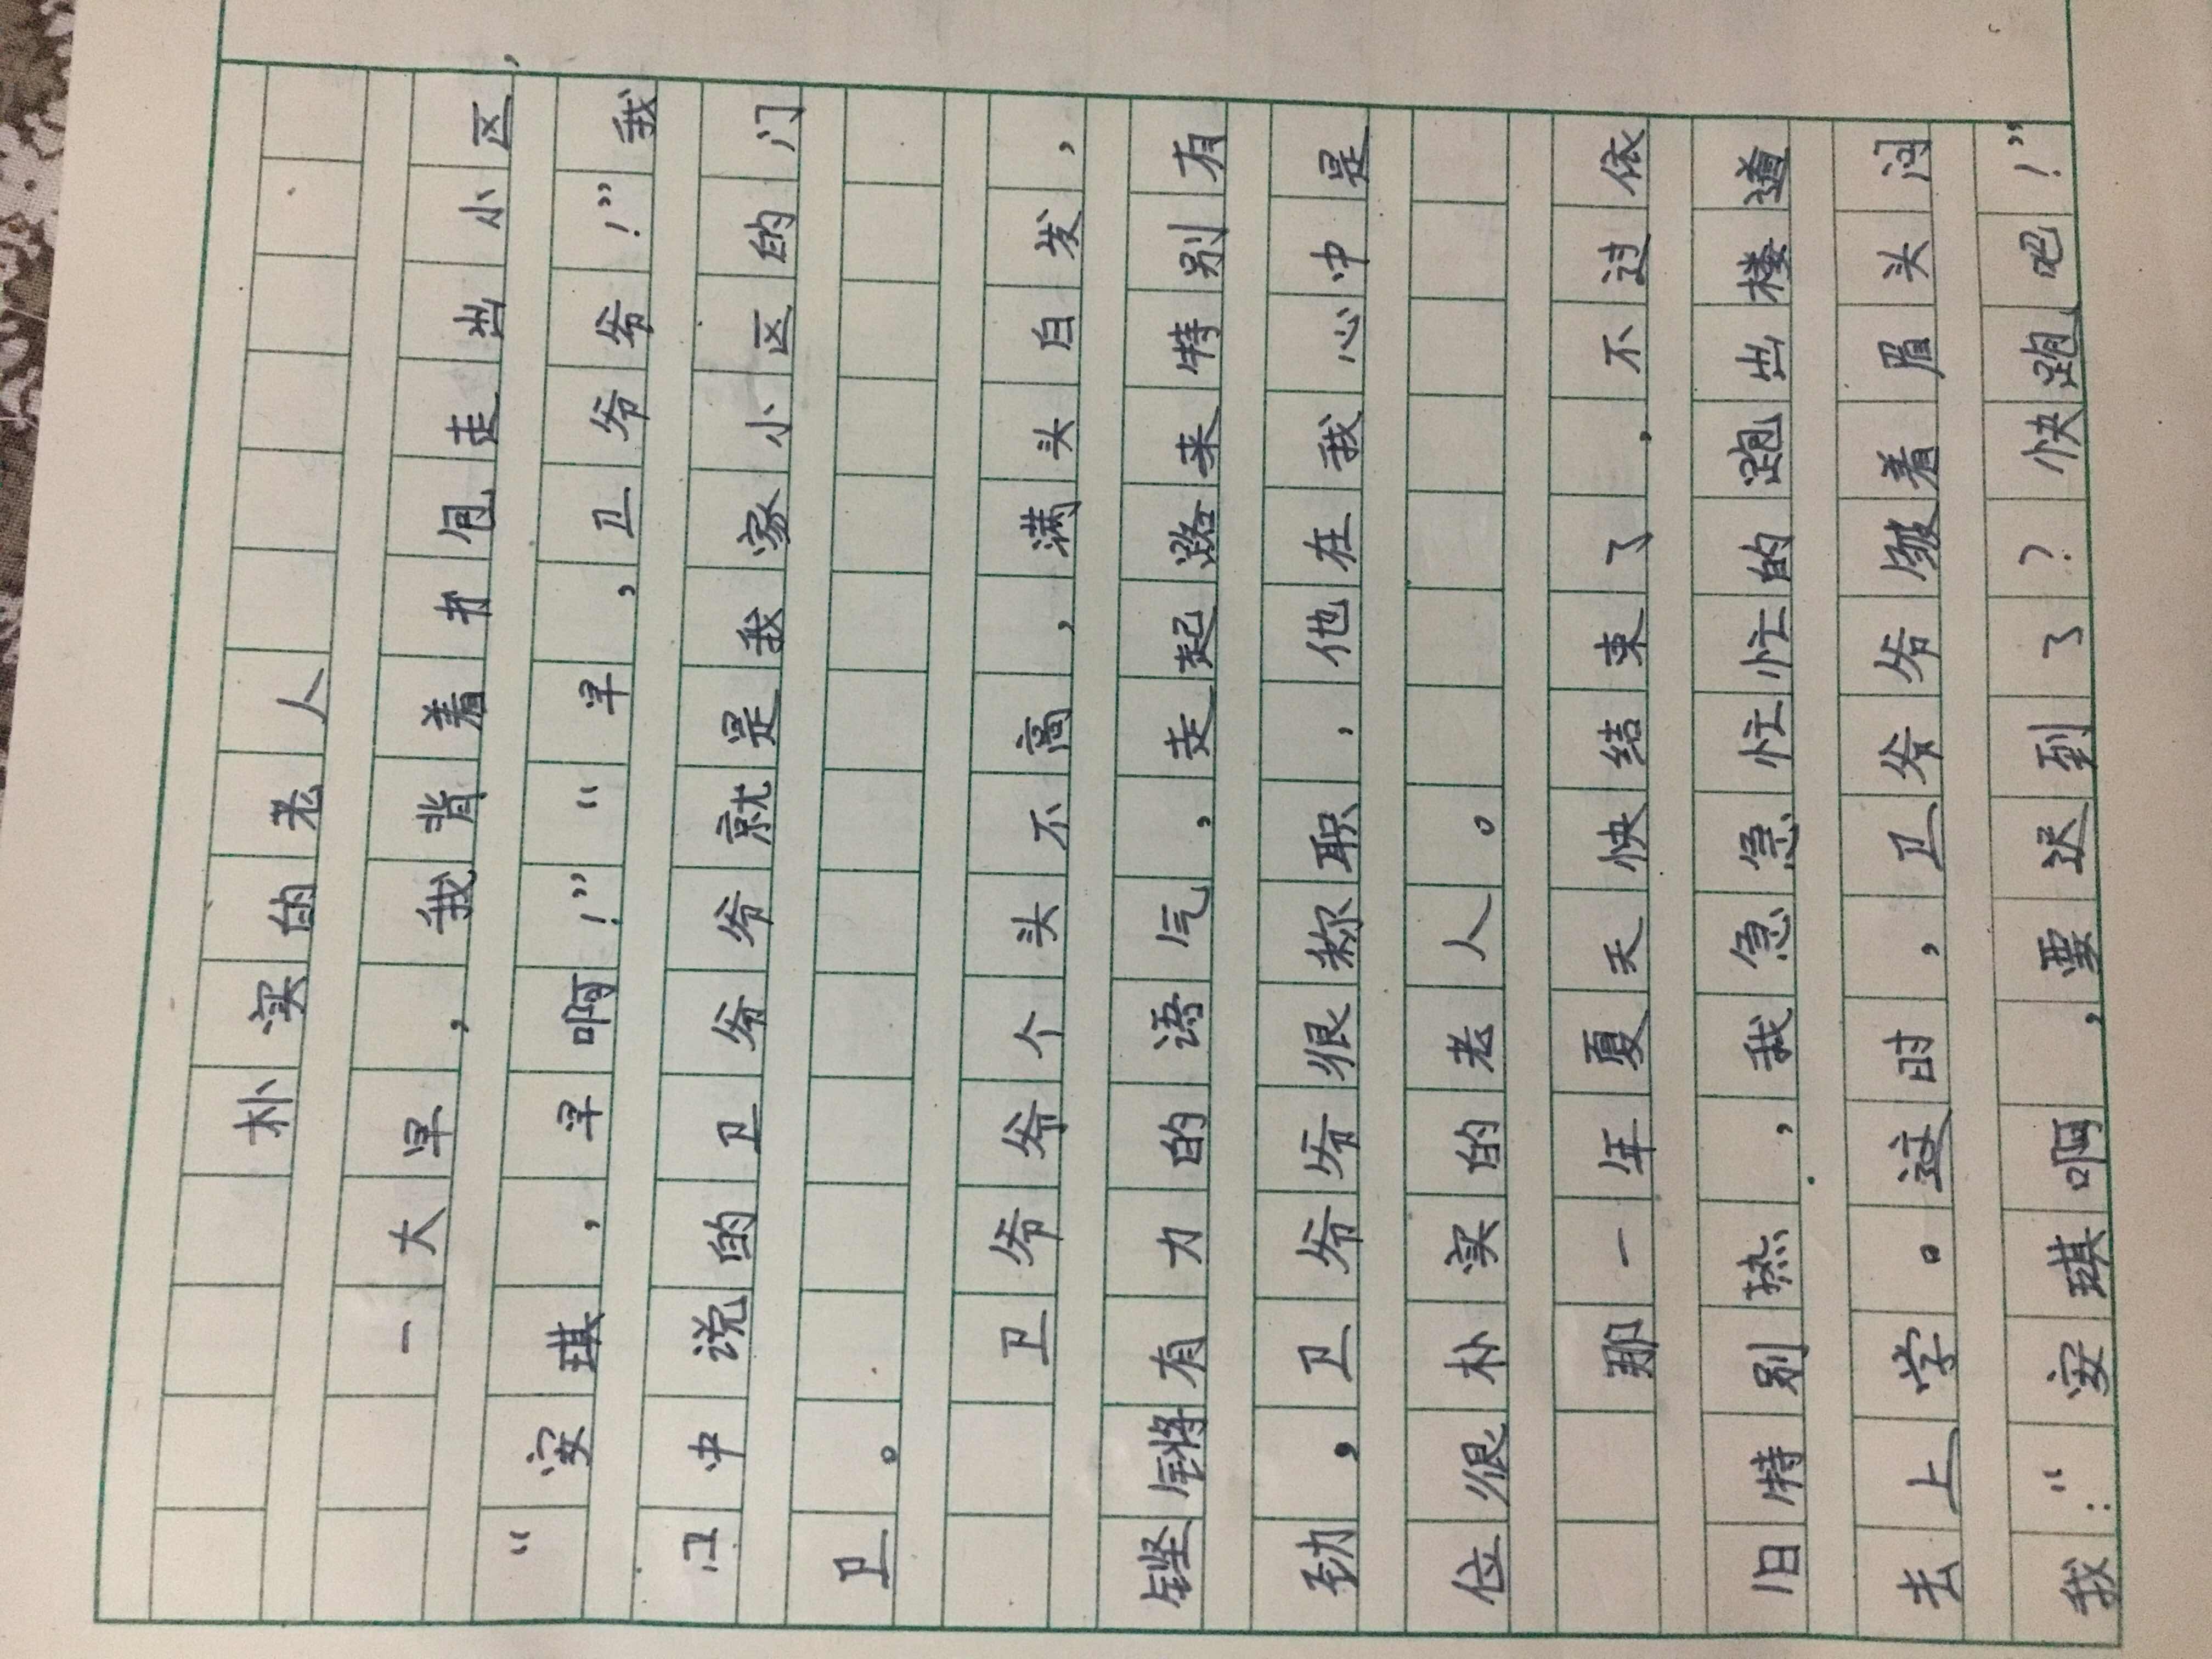 朴实的老人
一大早，我背着书包走出小区，
“安琪，早啊！”“早，卫爷爷！”我
口中说的卫爷爷就是我家小区的门
卫。
卫爷爷个头不高，满头白发，
铿锵有力的语气，走起路来特别有
劲，卫爷爷很称职，他在我心中是
位很朴实的老人。
那一年夏天快结束了，不过依
旧特别热，我急急忙忙的跑出楼道
去上学。这时，卫爷爷皱着眉头问
我：“安琪啊，要迟到了？快跑吧！”